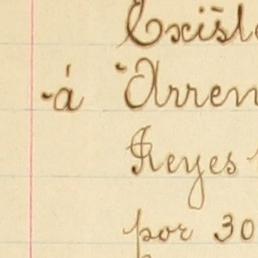 Existe
-á Arren
Reyes
por 30